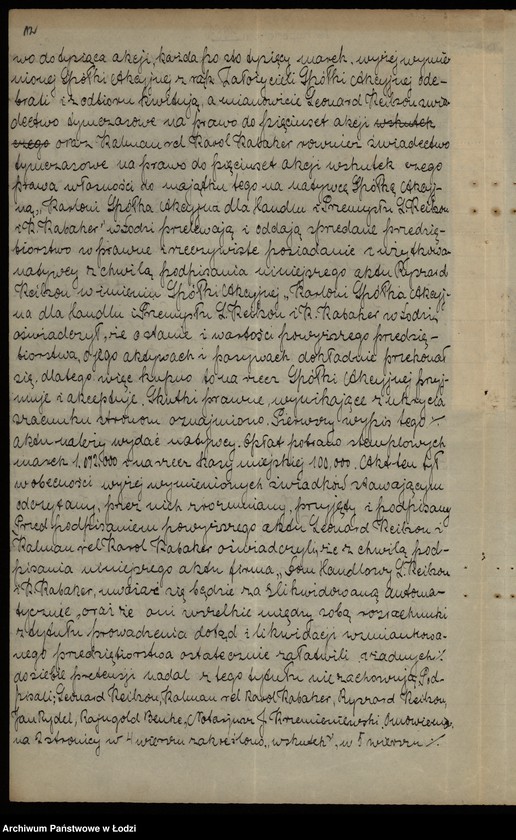 wo do tysiąca akcji, każda po sto tysięcy marek, wyżej wymie-
nionej Spółki Akcyjnej z rąk Założycieli Spółki Akcyjnej ode-
brali i z odbioru kwitują, a mianowicie Leonard świa-
dectwo tymczasowe na prawo do pięciuset akcji wskutek
czego oraz Kalman vel Karol Rabaker również świadectwo
tymczasowe na prawo do pięciuset akcji wskutek czego
prawa własności do majątku tego na nabywcę Spółkę Akcyj-
ną, " Spółka Akcyjna dla Handlu i Przemysłu L.
i K. Rabaker" w Łodzi przelewają i oddają sprzedane przedsię-
biorstwo w prawne i rzeczywiste posiadanie i użytkowa-
nabywcy z chwilą podpisania niniejszego aktu Ryszard
w imieniu Spółki Akcyjnej " Spółka Akcyj-
na dla Handlu i Przemysłu L. i K. Rabaker w Łodzi"
oświadczył, że o stanie i wartości powyższego przedsię-
biorstwa, o jego aktywach i pasywach dokładnie przekonał
się, dlatego więc kupno to na rzecz Spółki Akcyjnej przyj-
muje i akceptuje. Skutki prawne, wynikające z ukrycia
szacunku stronom oznajmiono. Pierwszy wypis tego
aktu należy wydać nabywcy. Opłat pobrano stemplowych
marek 1.072.000 i na rzecz kasy miejskiej 100,000. Akt ten był
w obecności wyżej wymienionych świadków stawającym
odczytany, przez nich zrozumiany, przyjęty i podpisany
Przed podpisaniem powyższego aktu Leonard i
Kalman vel Karol Rabaker oświadczyli, że z chwilą pod-
pisania niniejszego aktu firma "Dom Handlowy L.
i K. Rabaker, uważać się będzie za zlikwidowaną automa-
tycznie, oraz że oni wszelkie między sobą rozrachunki
z tytułu prowadzenia dotąd i likwidacji wzmiankowa-
nego przedsiębiorstwa ostatecznie załatwili i żadnych
do siebie pretensji nadal z tego tytułu nie zachowują. Pod-
pisali: Leonard Kalman vel Karol Rabaker, Ryszard
Jan Rydel, Rajngold Benke, Notarjusz J. Krzemieniewski. Omówiono,
na 2 stronicy w 4 wierszu zakreślono "wskutek", w 5 wierszu
Archiwum Państwowe w Łodzi